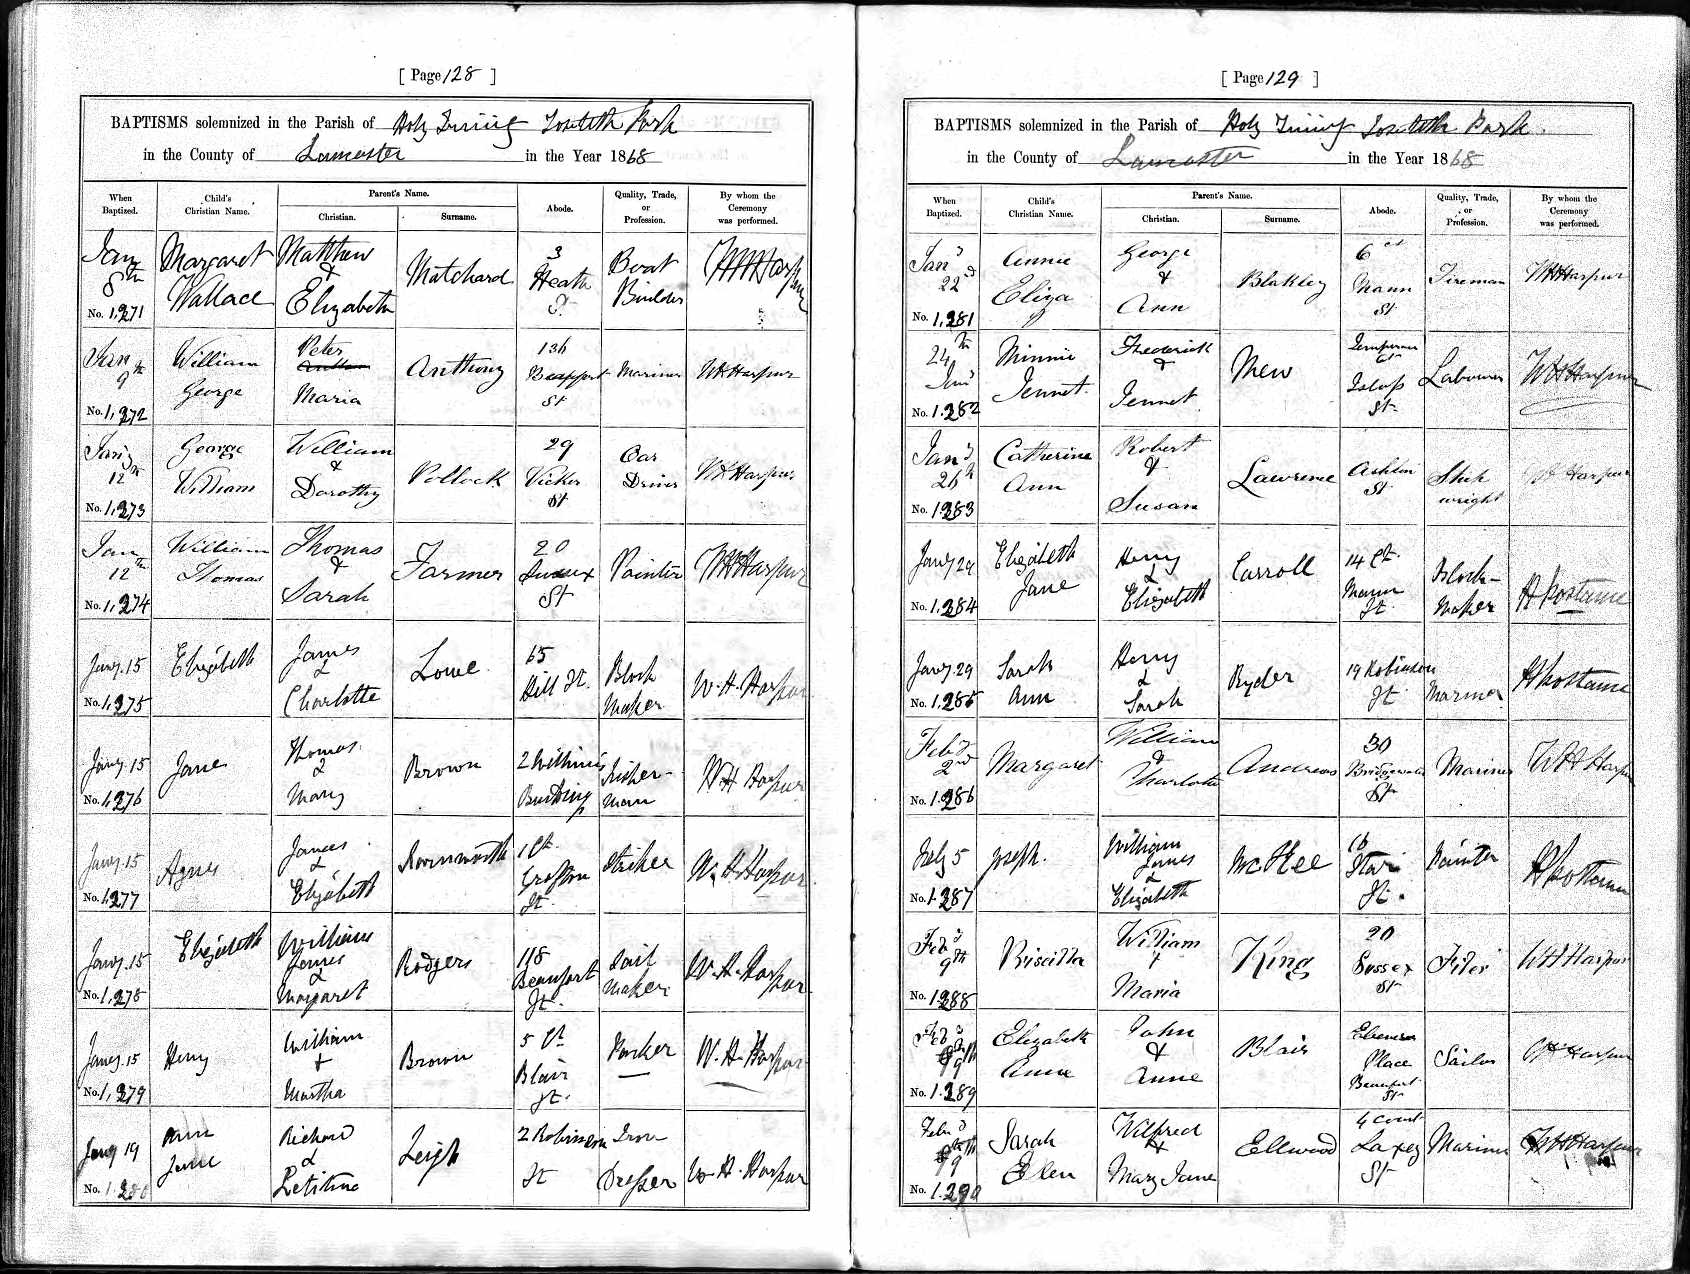 [ Page 128 ]
BAPTISMS solemnized in the Parish of Holy Trinity Toxteth Park
in the County of Lancaster in the Year 1868
When Baptized. Child's Christian Name. Parent's Name. Christian. Surname. Abode. Quality, Trade, or Profession. By whom the Ceremony was performed.
Jany 8th No. 1,271 Margaret Wallace Matthew & Elizabeth Matchard 3 Heath St Boat Builder WHHarpur
Jany 9th No. 1,272 William George Peter & Maria Anthony 136 Beaufort St Mariner WHHarpur
Jany 12th No. 1,273 George William William & Dorothy Pollock 29 Vicker St Car Driver WHHarpur
Jany 12th No. 1,274 William Thomas Thomas & Sarah Farmer 20 Sussex St Painter WHHarpur
Jany. 15 No. 1,275 Elizabeth James & Charlotte Lowe 65 Hill St. Block Maker W. H. Harpur
Jany. 15 No. 1,276 Jane Thomas & Mary Brown 2 Buildings Fisherman W. H Harpur
Jany. 15 No. 1,277 Agnes James & Elizabeth 1 Ct. Grafton St Striker W. H Harpur
Jany. 15 No. 1,278 Elizabeth William James & Margaret Rodgers 118 Beaufort St. Sail Maker W. H. Harpur
Jany. 15 No. 1,279 Henry William + Martha Brown 5 Ct. Blair St. Porker W. H. Harpur
Jany 19 No. 1,280 Ann Jane Richard & Letitia Leigh 2 Robinson St Iron Dresser W. H. Harpur
[ Page 129 ]
BAPTISMS solemnized in the Parish of Holy Trinity Toxteth Park.
in the County of Lancaster in the Year 1868
When Baptized. Child's Christian Name. Parent's Name. Christian. Surname. Abode. Quality, Trade, or Profession. By whom the Ceremony was performed.
Jany 22d No. 1,281 Annie Eliza George & Ann Blakley 6 ct Mann St Fireman WHHarpur
24th Jany No. 1.282 Minnie Jennet. Frederick & Jennet Mew Temperance Ct St. Labourer WHHarpur
Jany 26th No. 1283 Catherine Ann Robert & Susan Lawrence Ashton St Ship wright WH Harpur
Jany 29 No. 1,284 Elizabeth Jane Henry & Elizabeth Carroll 14 Ct. Mann St. Block-Maker H Postance
Jany 29 No. 1,285 Sarah Ann Henry & Sarah Ryder 19 Robinson St Mariner H Postance
Feby 2nd No. 1.286 Margaret William & Charlotte Andrews 30 Bridgewater St Mariner WHHarpur
Feby 5 No. 1.287 Joseph. William James & Elizabeth McKee 16 St. Painter H Postance
Feby 9th No. 1288 Priscilla William + Maria King 20 Sussex St WHHarpur
Feby 9th No. 1.289 Elizabeth Anne John & Anne Blair Ebenezer Place Beaufort St Sailor WH Harpur
Feby 9 No. 1.290 Sarah Elen Wilfred & Mary Jane Ellwood 4 Court Laxey St Mariner WHHarpur